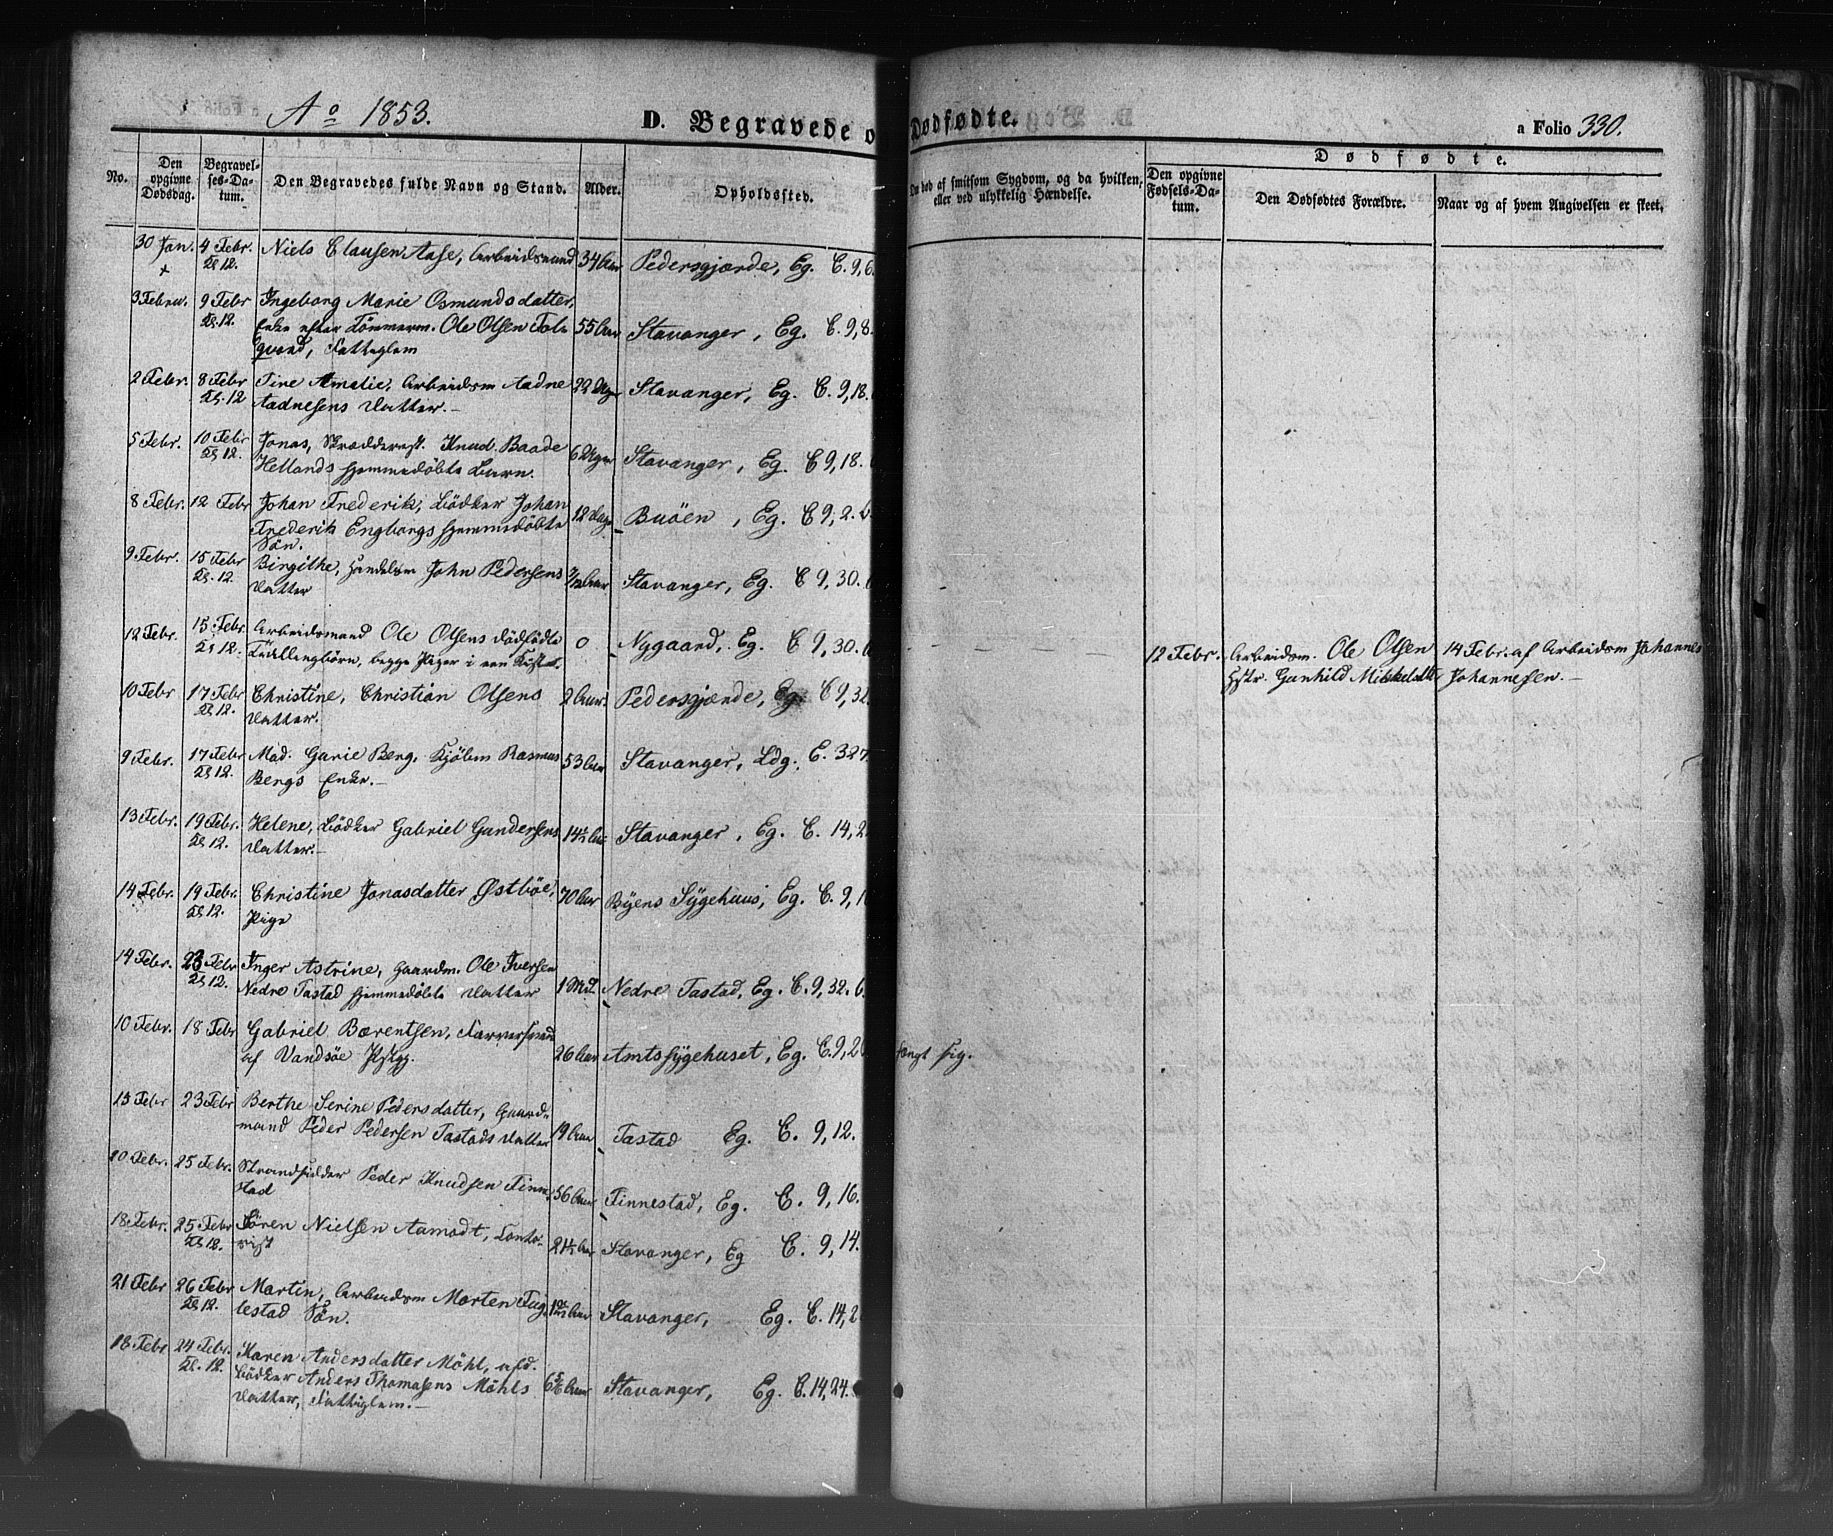 Ao 1853.
D. Begravede o
Dødfødte.
a Folio 330.
No.
Den opgivne Dødsdag.
Begravelses-Datum.
Den Begravedes fulde Navn og Stand.
Alder.
Opholdssted.
Om død af smitsom Sygdom, og da hvilken,
eller ved ulykkelig Hændelse.
Dødfødte.
Den opgivne Fødsels-Datum.
Den Dødfødtes Forældre.
Naar og af hvem Angivelsen er skeet.
30 Jan. 4 Febr. Niels Clausen Aase, Arbeidsmand 34 Aar Pedersgjærde, Eg. C. 9,6.
+ Kl 12.
3 Febru. 9 Febr Ingeborg Marie Osmundsdatter,
Kl. 12. Enke efter Tømmerm. Ole Olsen 55 Aar Stavanger, Eg. C. 9,8.
Fattiglem
2 Febr. 8 Febr Tine Amalie, Arbeidsm Aadne 22 Uger Stavanger, Eg. C. 9,18.
Kl. 12 Aadnesens Datter.-
5 Febr. 10 Febr Jonas, Knud Baade 6 Uger Stavanger, Eg. C 9,18.
Kl 12. Hellands hjemmedøbte Barn.
8 Febr. 12 Febr Johan Frederik, Bødker Johan 12 Dage Buöen, Eg. C 9,2.
Frederik Engborgs hjemmedøbte
Sön.
9 Febr. 15 Febr Birgithe, Handelsm John Pedersens Stavanger, Eg. C 9,30.
Kl. 12. Datter
12 Febr. 15 Febr. Arbeidsmand Ole Olsens dödfödte 0 Nygaard, Eg. C 9,30.
Kl 12. Tvillingbörn, begge Piger i een Kiste.
12 Febr. Arbeidsm. Ole Olsen 14 Febr. af Arbeidsm Johannes
Hstr. Gunhild Mikkelsdtr Johannesen.-
10 Febr 17 Febr Christine, Christian Olsens 2 Aar. Pedersgjærde, Eg. C 9,32.
Kl 12. Datter.
9 Febr. 17 Febr Mad. Garie Berg, Kjöbm Rasmus 53 Aar Stavanger, Ldg. C. 327.
Kl 12. Bergs Enke.-
13 Febr. 19 Febr. Helene, Bödker Gabriel Gundersens Stavanger, Eg. C. 14,2
Kl 12. Datter.-
14 Febr. 19 Febr. Christine Jonasdatter Østböe, 70 Aar Byens Sygehuus, Eg. C. 9,1
Kl 12. Pige
14 Febr. 23 Febr Inger Astrine, Gaardm. Ole Iversen 1 Md. Nedre Tastad, Eg. C. 9,32.
Kl 12. Nedre Tastad hjemmedöbte Datter
10 Febr. 18 Febr Gabriel Bærentsen, 26 Aar Amtssygehuset, Eg. C. 9,2
af Vandsöe
hængt sig.
15 Febr 23 Febr Berthe Serine Pedersdatter, Gaard-
mand Peder Pedersen Tastads Datter 19 Aar Tastad Eg. C. 9,12.
20 Febr. 25 Febr. Strandsidder Peder Knudsen Finne- 56 Aar Finnestad, Eg. C. 9,16.
stad
18 Febr. 25 Febr Sören Nielsen Aamodt, Conto- Stavanger, Eg C. 9,14.
Kl 12. rist
21 Febr 26 Febr Martin, Arbeidsm Morten Fug- Stavanger, Eg. C. 14,2
Kl 12. lestad Sön.
18 Febr 24 Febr. Karen Andersdatter Möhl, afd.
Kl. 12 Bödker Anders Thomasens Möhls Stavanger, Eg. C. 14,24.
Datter, Fattiglem.-